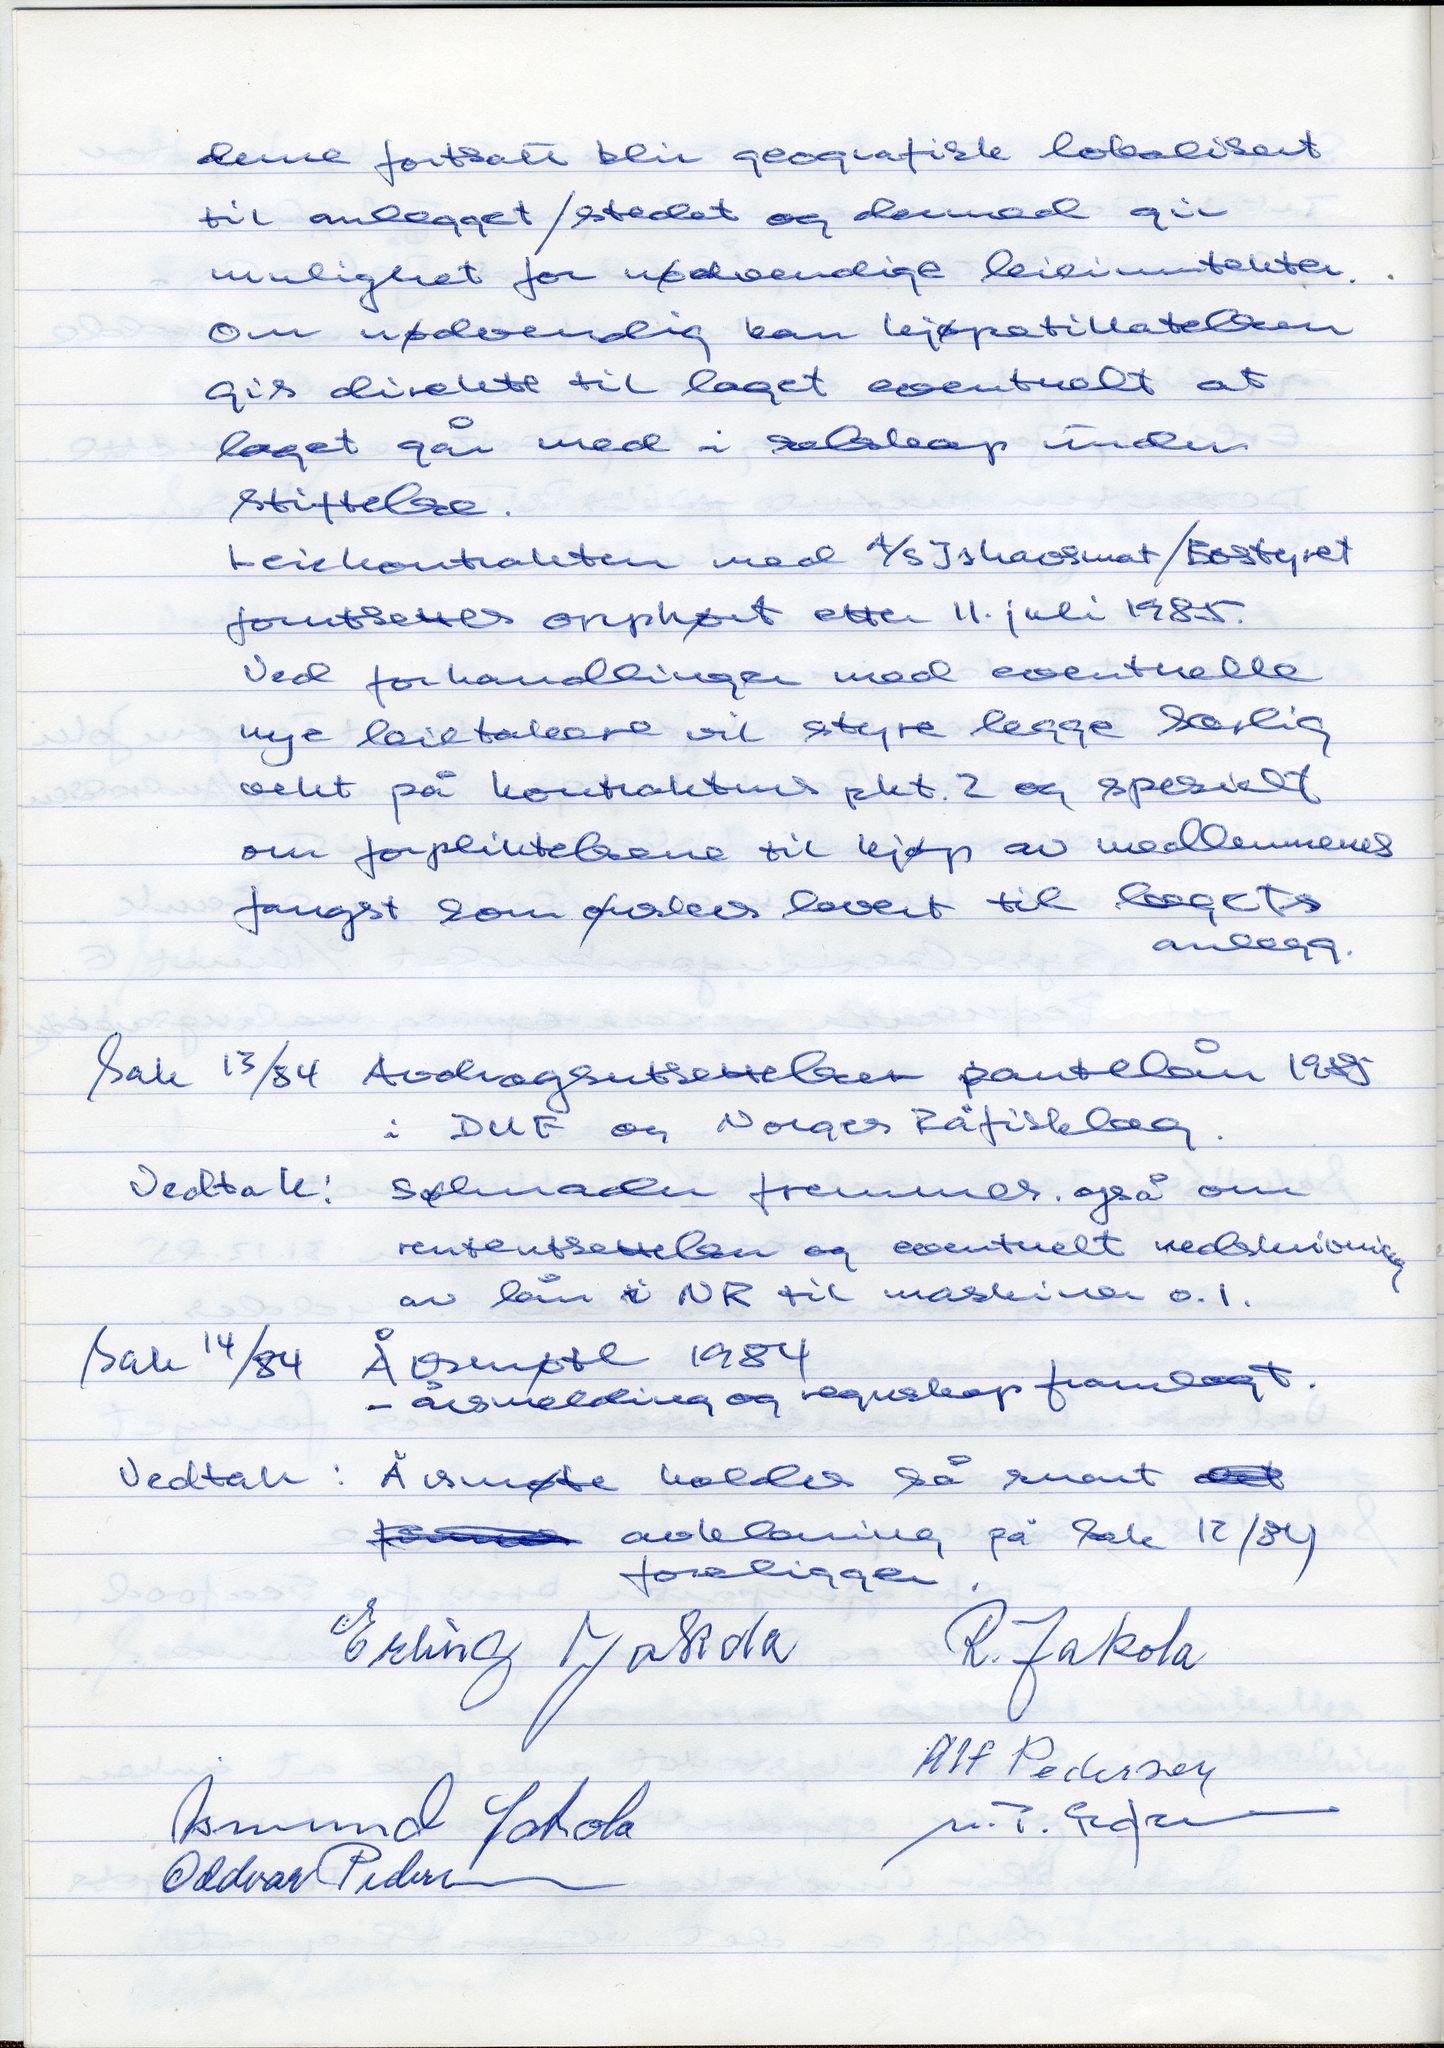 denne fortsatt blir geografisk lokalisert
til anlegget/stedet og dermed gir
mulighet for nødvendige leieinntekter.
Om nødvendig kan kjøpetillatelsen
gis direkte til laget eventuelt at
laget går med i selskap under
stiftelse.
Leiekontrakten med A/S Ishavsmat/Bostyret
forutsettes opphørt etter 11. juli 1985.
Ved forhandlinger med eventuelle
nye leietakere vil styre legge særlig
vekt på kontraktens pkt. 2 og spesielt
om forpliktelsene til kjøp av medlemmenes
fangst som ønskes levert til lagets
anlegg.
Sak 13/84 Avdragsutsettelser pantelån 1985
i DUF og Norges Råfisklag.
Vedtak: Søknader fremmes. også om
renteutsettelsen og eventuelt nedskriving
av lån i NR til maskiner o.l.
Sak 14/84 Årsmøte 1984
- årsmelding og regnskap framlagt.
Vedtak: Årsmøte holdes så snart
avklaring på Sak 12/84
foreligger.
Erling R. Jakola
Alf Pedersen
Asmund Jakola
Oddvar Peders